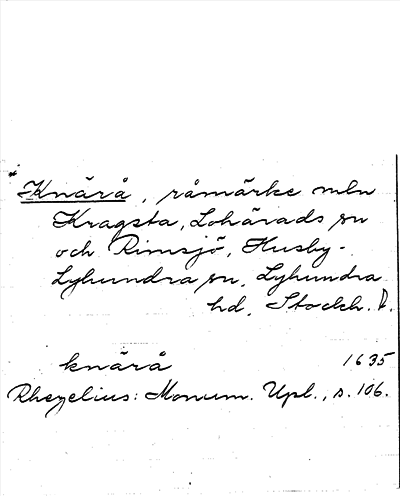 Knärå, råmärke mln
Kragsta, Lohärads sn
och Rimsjö, Husby-
Lyhundra sn, Lyhundra
hd, Stockh. l.
knärå 1635
Rhezelius: Monum. Upl., s. 106.